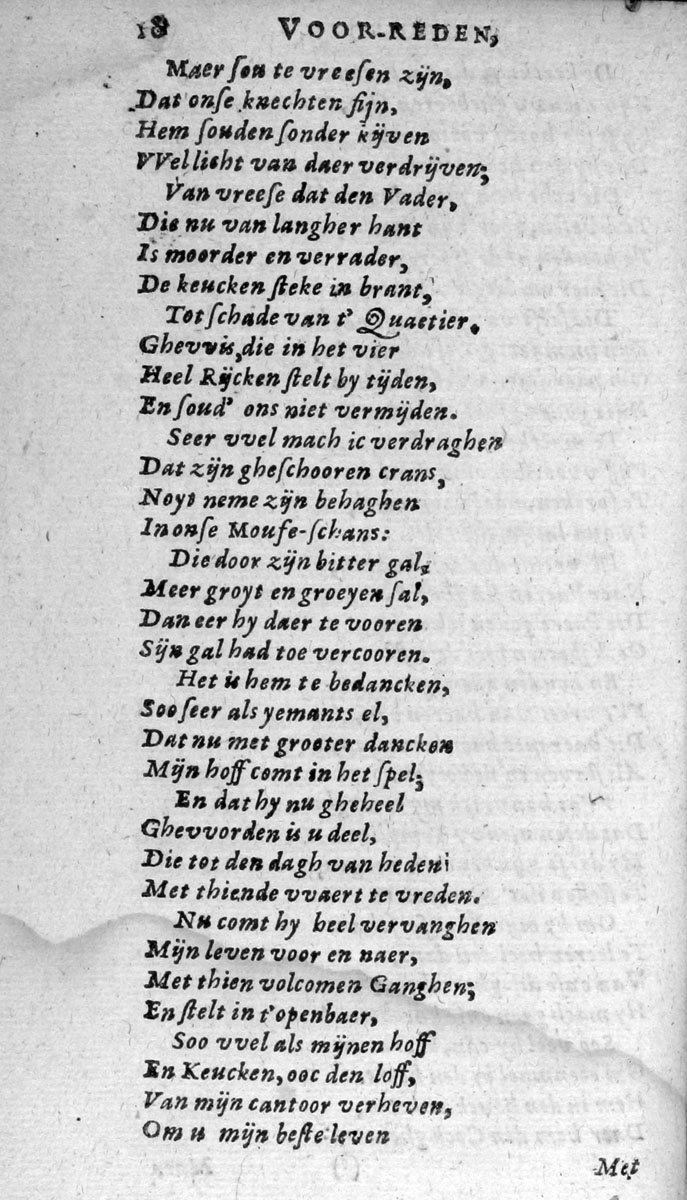 18 VOOR-REDEN,
Maer sou te vreesen zijn,
Dat onse knechten fijn,
Hem souden sonder kijven
VVel licht van daer verdrijven;
Van vreese dat den Vader,
Die nu van langher hant
Is moorder en verrader,
De keucken steke in brant,
Tot schade van t' Quaetier.
Ghevvis, die in het vier
Heel Rijcken stelt by tijden,
En soud' ons niet vermijden.
Seer vvel mach ic verdraghen
Dat zijn gheschooren crans,
Noyt neme zijn behaghen
In onse Moufe-schans:
Die door zijn bitter gal,
Meer groyt en groeyen sal,
Dan eer hy daer te vooren
Sijn gal had toe vercooren.
Het is hem te bedancken,
Soo seer als yemants el,
Dat nu met grooter dancken
Mijn hoff comt in het spel;
En dat hy nu gheheel
Ghevvorden is u deel,
Die tot den dagh van heden
Met thiende vvaert te vreden.
Nu comt hy heel vervanghen
Mijn leven voor en naer,
Met thien volcomen Ganghen;
En stelt in t'openbaer,
Soo vvel als mijnen hoff
En Keucken, ooc den loff,
Van mijn cantoor verheven,
Om u mijn beste leven
Met